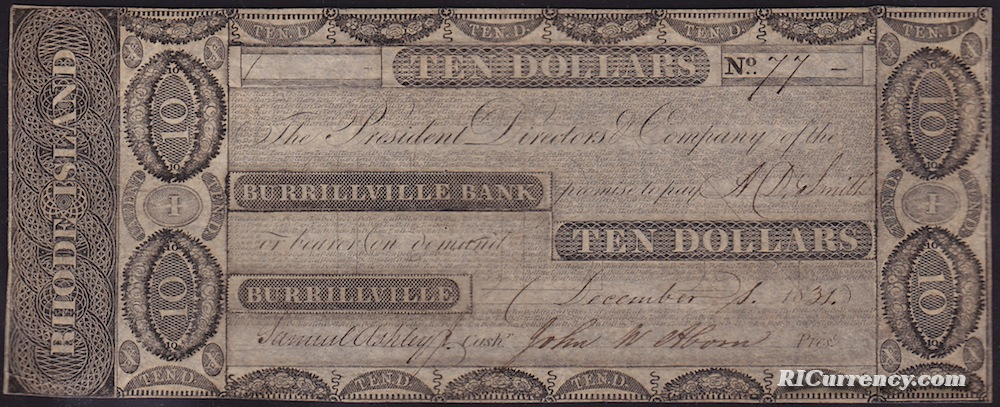 RHODE ISLAND
TEN.D. TEN.D. TEN.D. TEN.D.
TEN DOLLARS No. 77 –
10 10
The President Directors & Company of the
BURRILLVILLE BANK promise to pay A D Smith
or bearer on demand TEN DOLLARS
10 10
BURRILLVILLE December 1. 1831.
Samuel Ashley Jr. Cashr. John W Aborn Prest.
TEN.D. TEN.D. TEN.D. TEN.D.
RICurrency.com